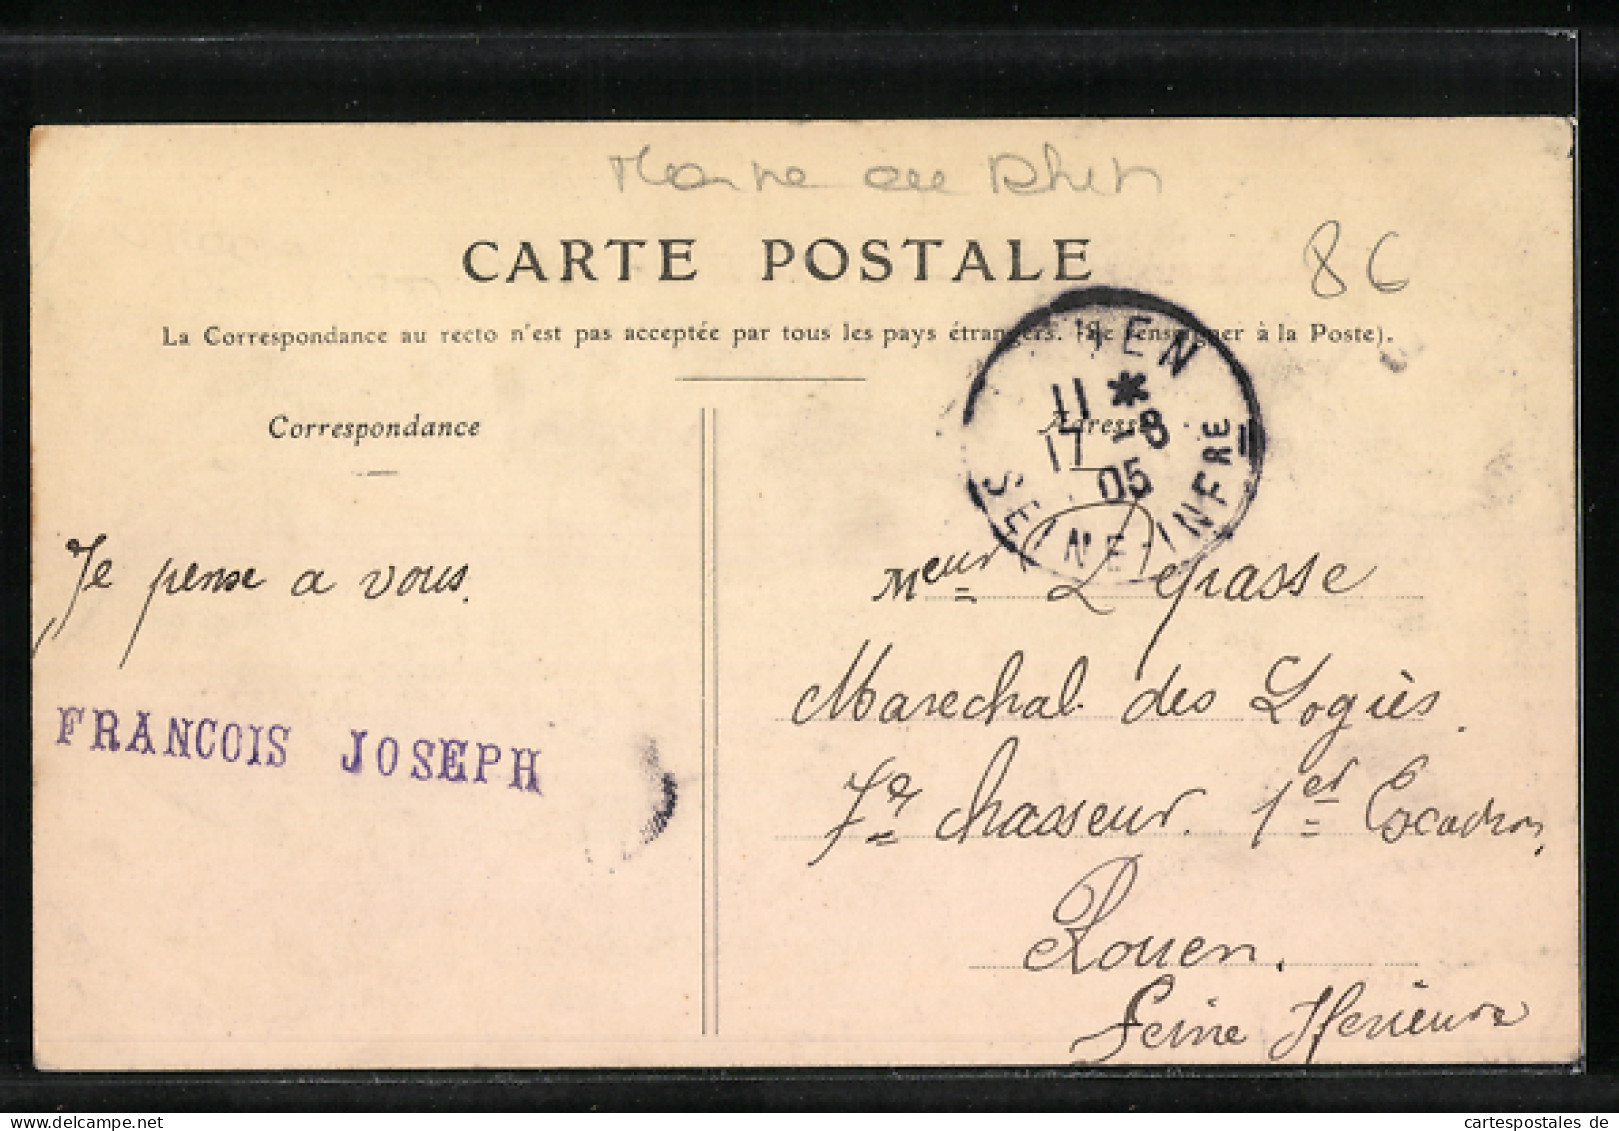 Marne au Rhin
86
CARTE POSTALE
La Correspondance au recto n'est pas acceptée par tous les pays étrangers. (Se renseigner à la Poste).
Correspondance
Adresse
11 *
17 -8
05
SEINE-INFRE
Je pense a vous.
FRANCOIS JOSEPH
Meur Lepasse
Marechal des Logiès
7e Chasseur. 1er Escadron,
Rouen.
Seine Iferieure
cartespostales de
www.cartespostales.de